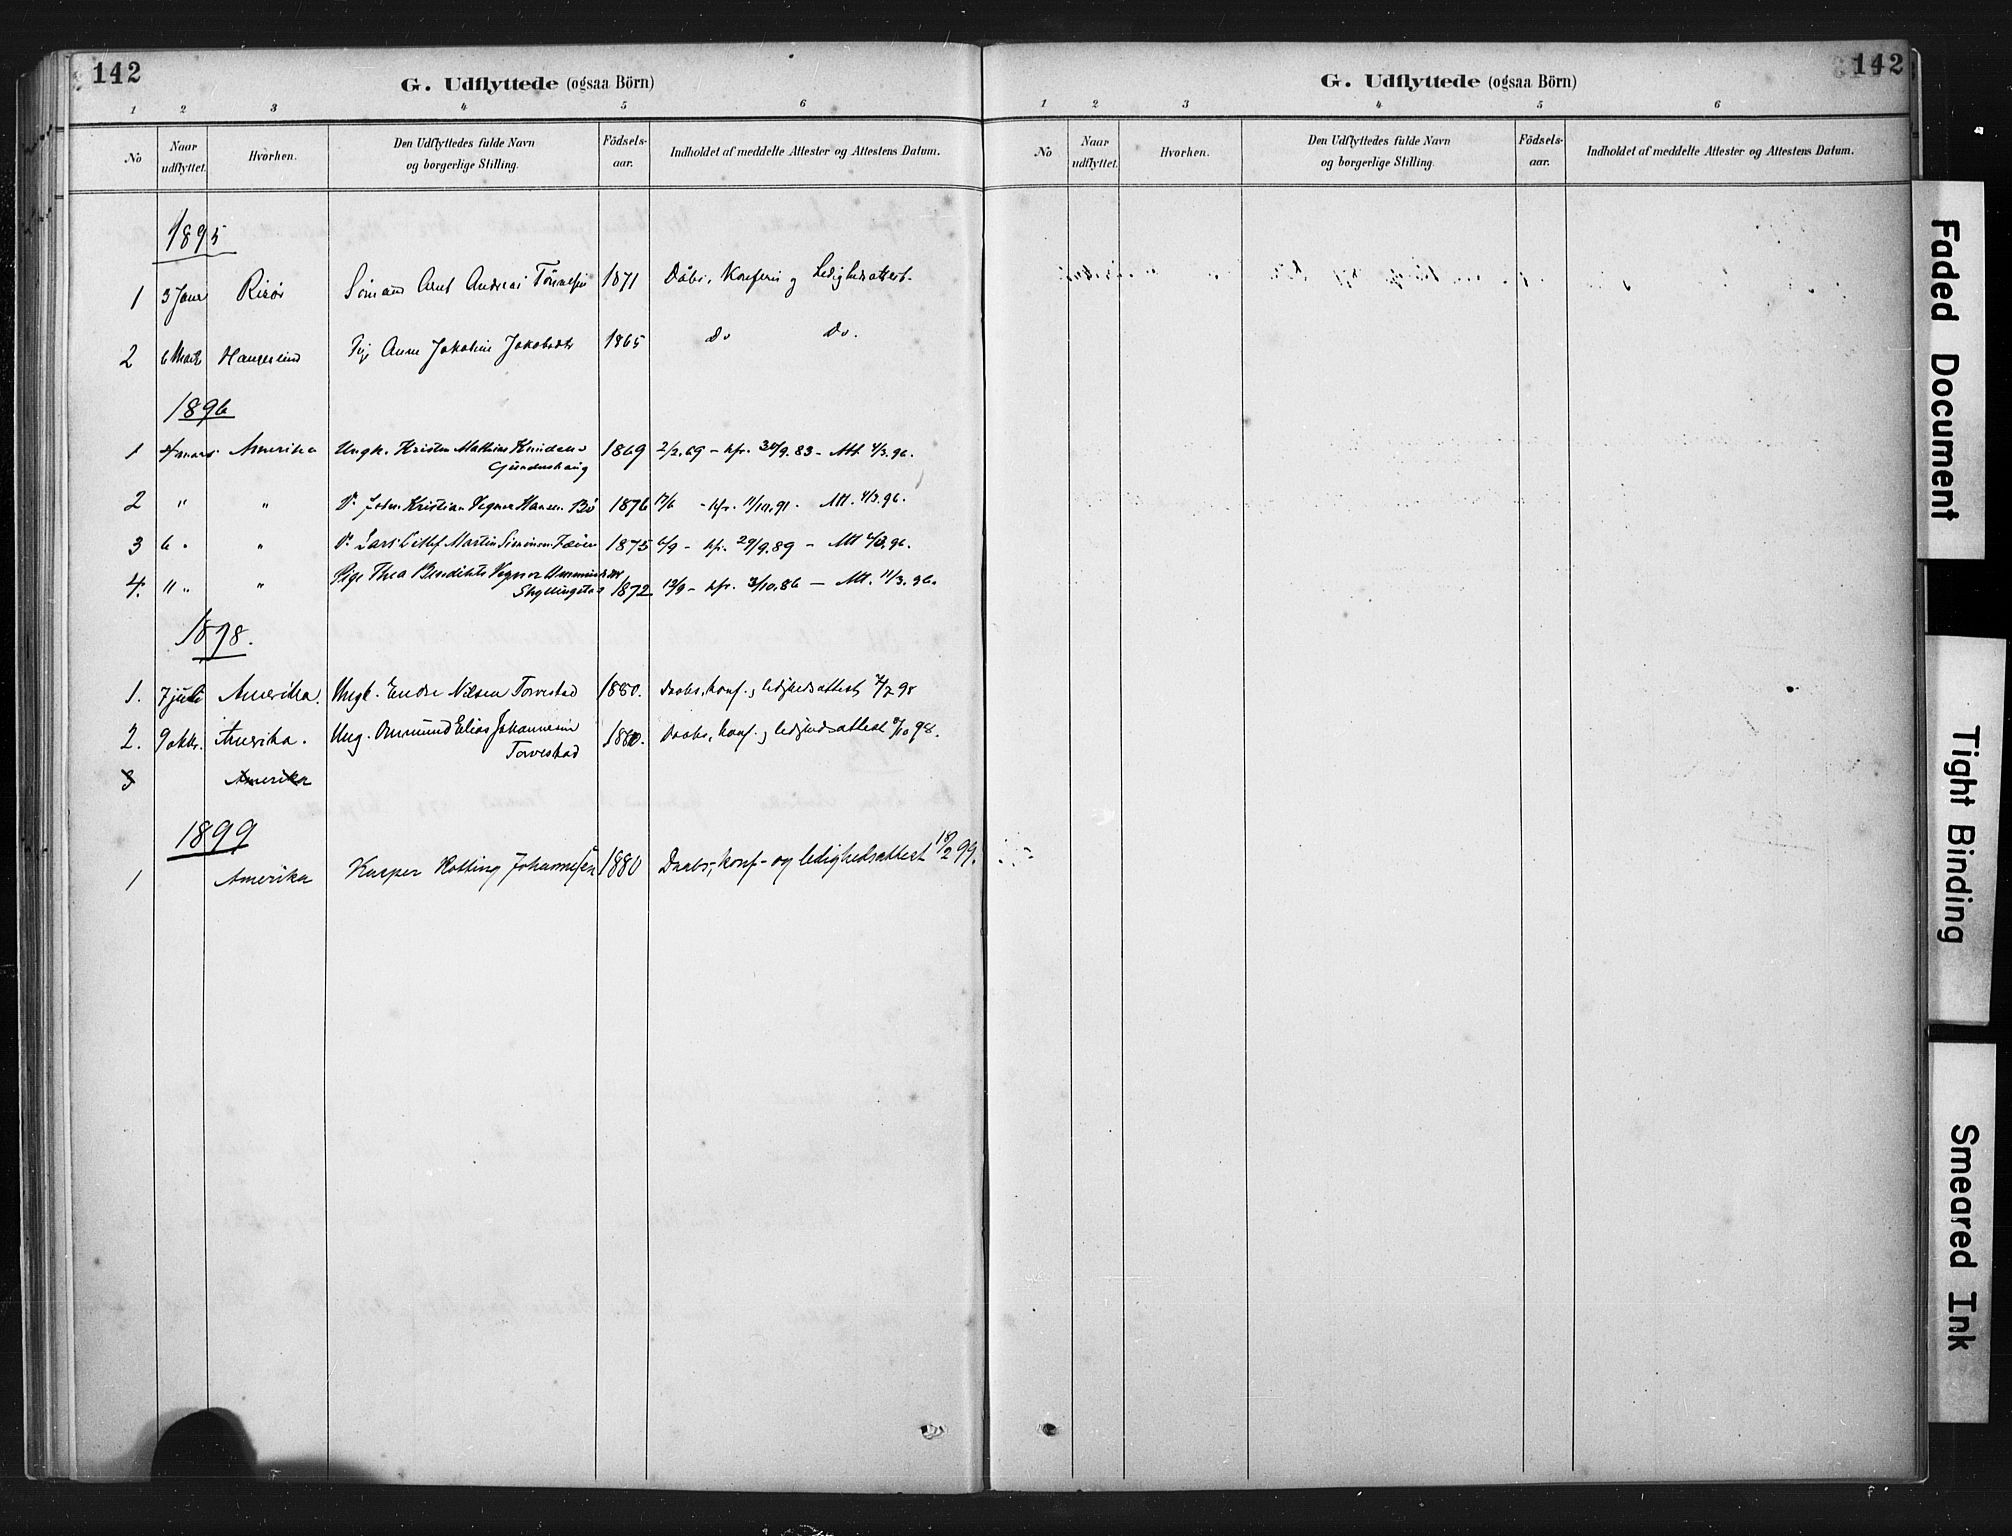 142
G. Udflyttede (ogsaa Börn)
1 2 3 4 5 6
No Naar udflyttet. Hvorhen. Den Udflyttedes fulde Navn og borgerlige Stilling. Födsels-aar. Indholdet af meddelte Attester og Attestens Datum.
1895
1 3 Janr Risør Sömand Arnt Andreas 1871 Dåbs, Konferm og Ledighedsattest.
2 6 Marts Haugesund Pige Anne Jakobine Jakobsdtr 1865 Do Do.
1896
1 4 mars Amerika Ungk. Kristen Mathias Knudsen 1869 2/2.69 - kfr. 9.83 - Att 4/3.96.
2 " " Do John Kristian Vegner Hansen Bö 1876 17/6 - kfr. 11/10.91. Att. 4/3.96.
3 6 " " Do Lars Martin Simonsen 1875 6/9 - kfr. 29/9.89 - Att 96.
4. 11 " " Pige Thea Benedikte Vegner
1872 12/9 - kfr. 3/10.86 - Att. 11/3.96.
1898.
1. 7 juli Amerika. Ungk. Endre Nilsen Torvestad 1880. Daabs, konf. og ledighedsattest 7/2 98
2. 9 oktr. Amerika. Ung. Ommund Elias Johannesen 1880. Daabs, konf. og ledighedsattest 9/10 98.
Torvestad
3 Amerika
1899
1 Amerika Kasper Kotting Johannesen 1880 Daabs-, konf- og ledighedsattest 18/2 99.
142
G. Udflyttede (ogsaa Börn)
1 2 3 4 5 6
No Naar udflyttet. Hvorhen. Den Udflyttedes fulde Navn og borgerlige Stilling. Födsels-aar. Indholdet af meddelte Attester og Attestens Datum.
Faded Document
Tight Binding
Smeared Ink